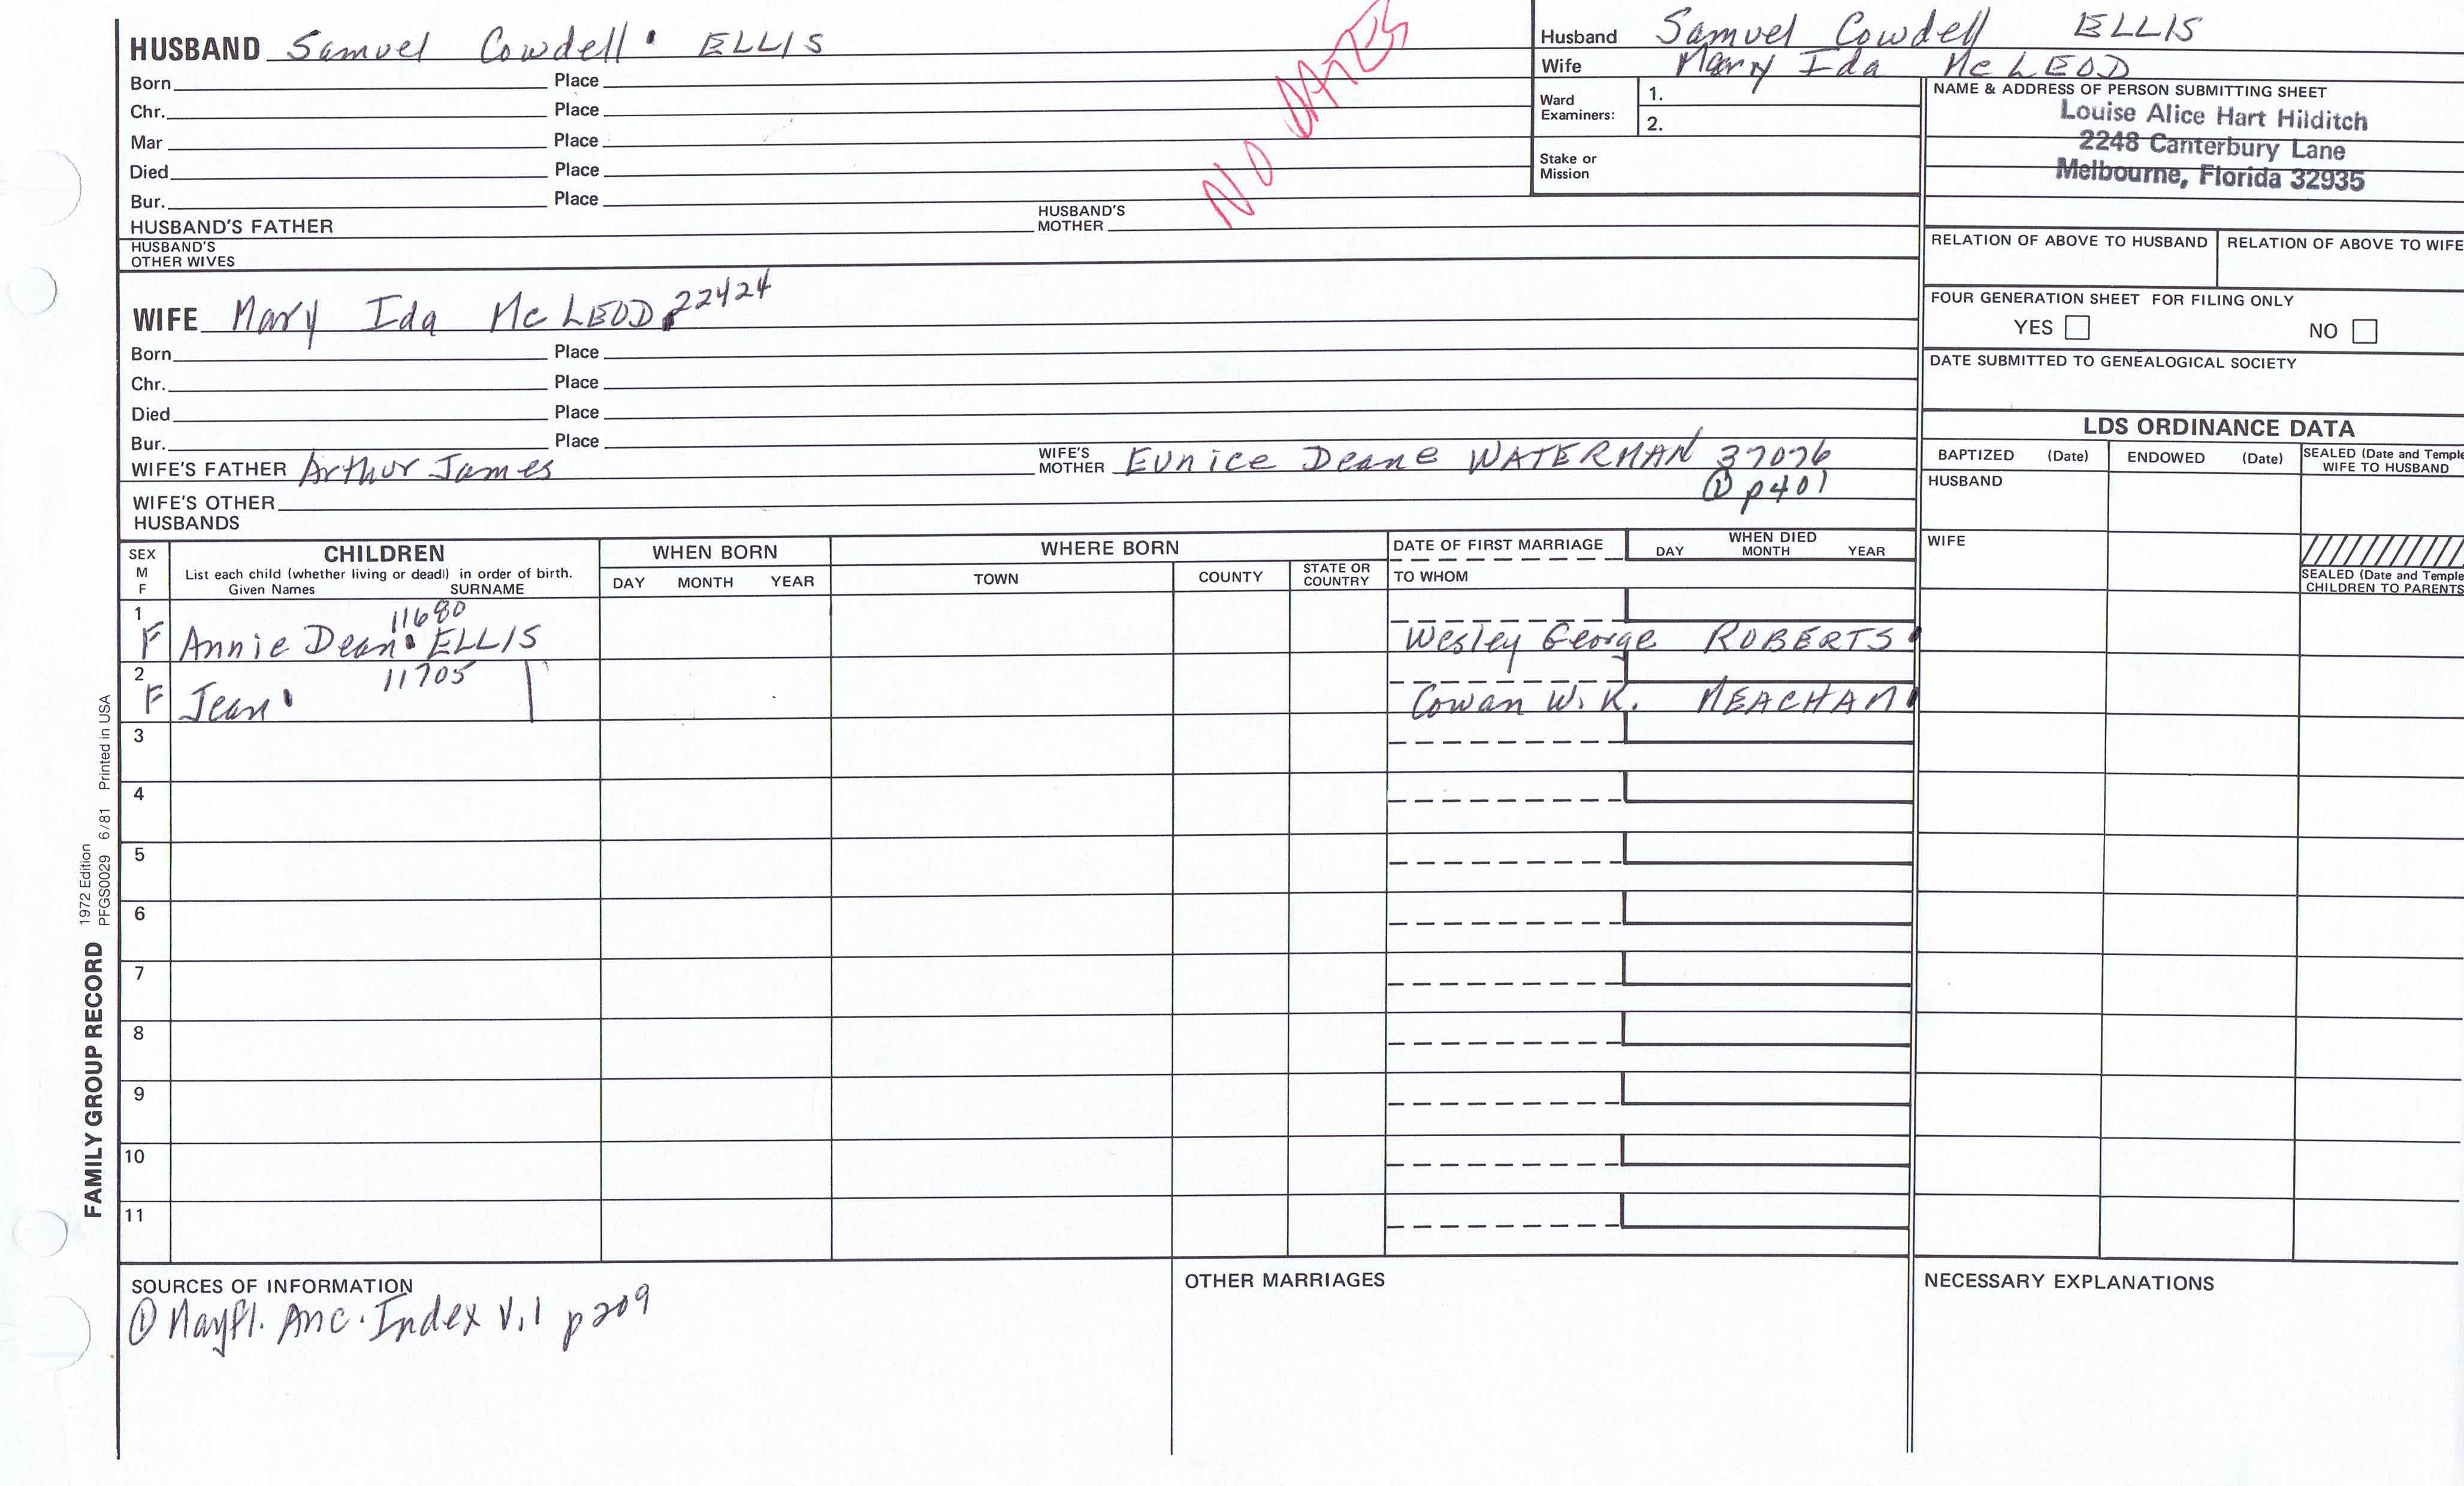 HUSBAND Samuel Cowdell ELLIS
Born Place
Chr. Place
Mar Place
Died Place
Bur. Place
HUSBAND'S FATHER HUSBAND'S MOTHER
HUSBAND'S OTHER WIVES
NO DATES
Husband Samuel Cowdell ELLIS
Wife Mary Ida McLEOD
Ward Examiners: 1.
2.
Stake or Mission
NAME & ADDRESS OF PERSON SUBMITTING SHEET
Louise Alice Hart Hilditch
2248 Canterbury Lane
Melbourne, Florida 32935
RELATION OF ABOVE TO HUSBAND RELATION OF ABOVE TO WIFE
FOUR GENERATION SHEET FOR FILING ONLY
YES NO
DATE SUBMITTED TO GENEALOGICAL SOCIETY
WIFE Mary Ida McLEOD 22424
Born Place
Chr. Place
Died Place
Bur. Place
WIFE'S FATHER Arthur James WIFE'S MOTHER Eunice Deane WATERMAN 37076
① p401
WIFE'S OTHER HUSBANDS
LDS ORDINANCE DATA
BAPTIZED (Date) ENDOWED (Date) SEALED (Date and Temple WIFE TO HUSBAND
HUSBAND
WIFE
SEALED (Date and Temple CHILDREN TO PARENTS
SEX M F CHILDREN WHEN BORN WHERE BORN DATE OF FIRST MARRIAGE WHEN DIED
List each child (whether living or dead) in order of birth.
Given Names SURNAME DAY MONTH YEAR TOWN COUNTY STATE OR COUNTRY TO WHOM DAY MONTH YEAR
1 11680
F Annie Dean ELLIS Wesley George ROBERTS
2 11705
F Jean Cowan W. K. MEACHAM
3
4
5
6
7
8
9
10
11
SOURCES OF INFORMATION OTHER MARRIAGES NECESSARY EXPLANATIONS
① Mayfl. Anc. Index V.1 p209
FAMILY GROUP RECORD 1972 Edition
PFGS0029 6/81 Printed in USA